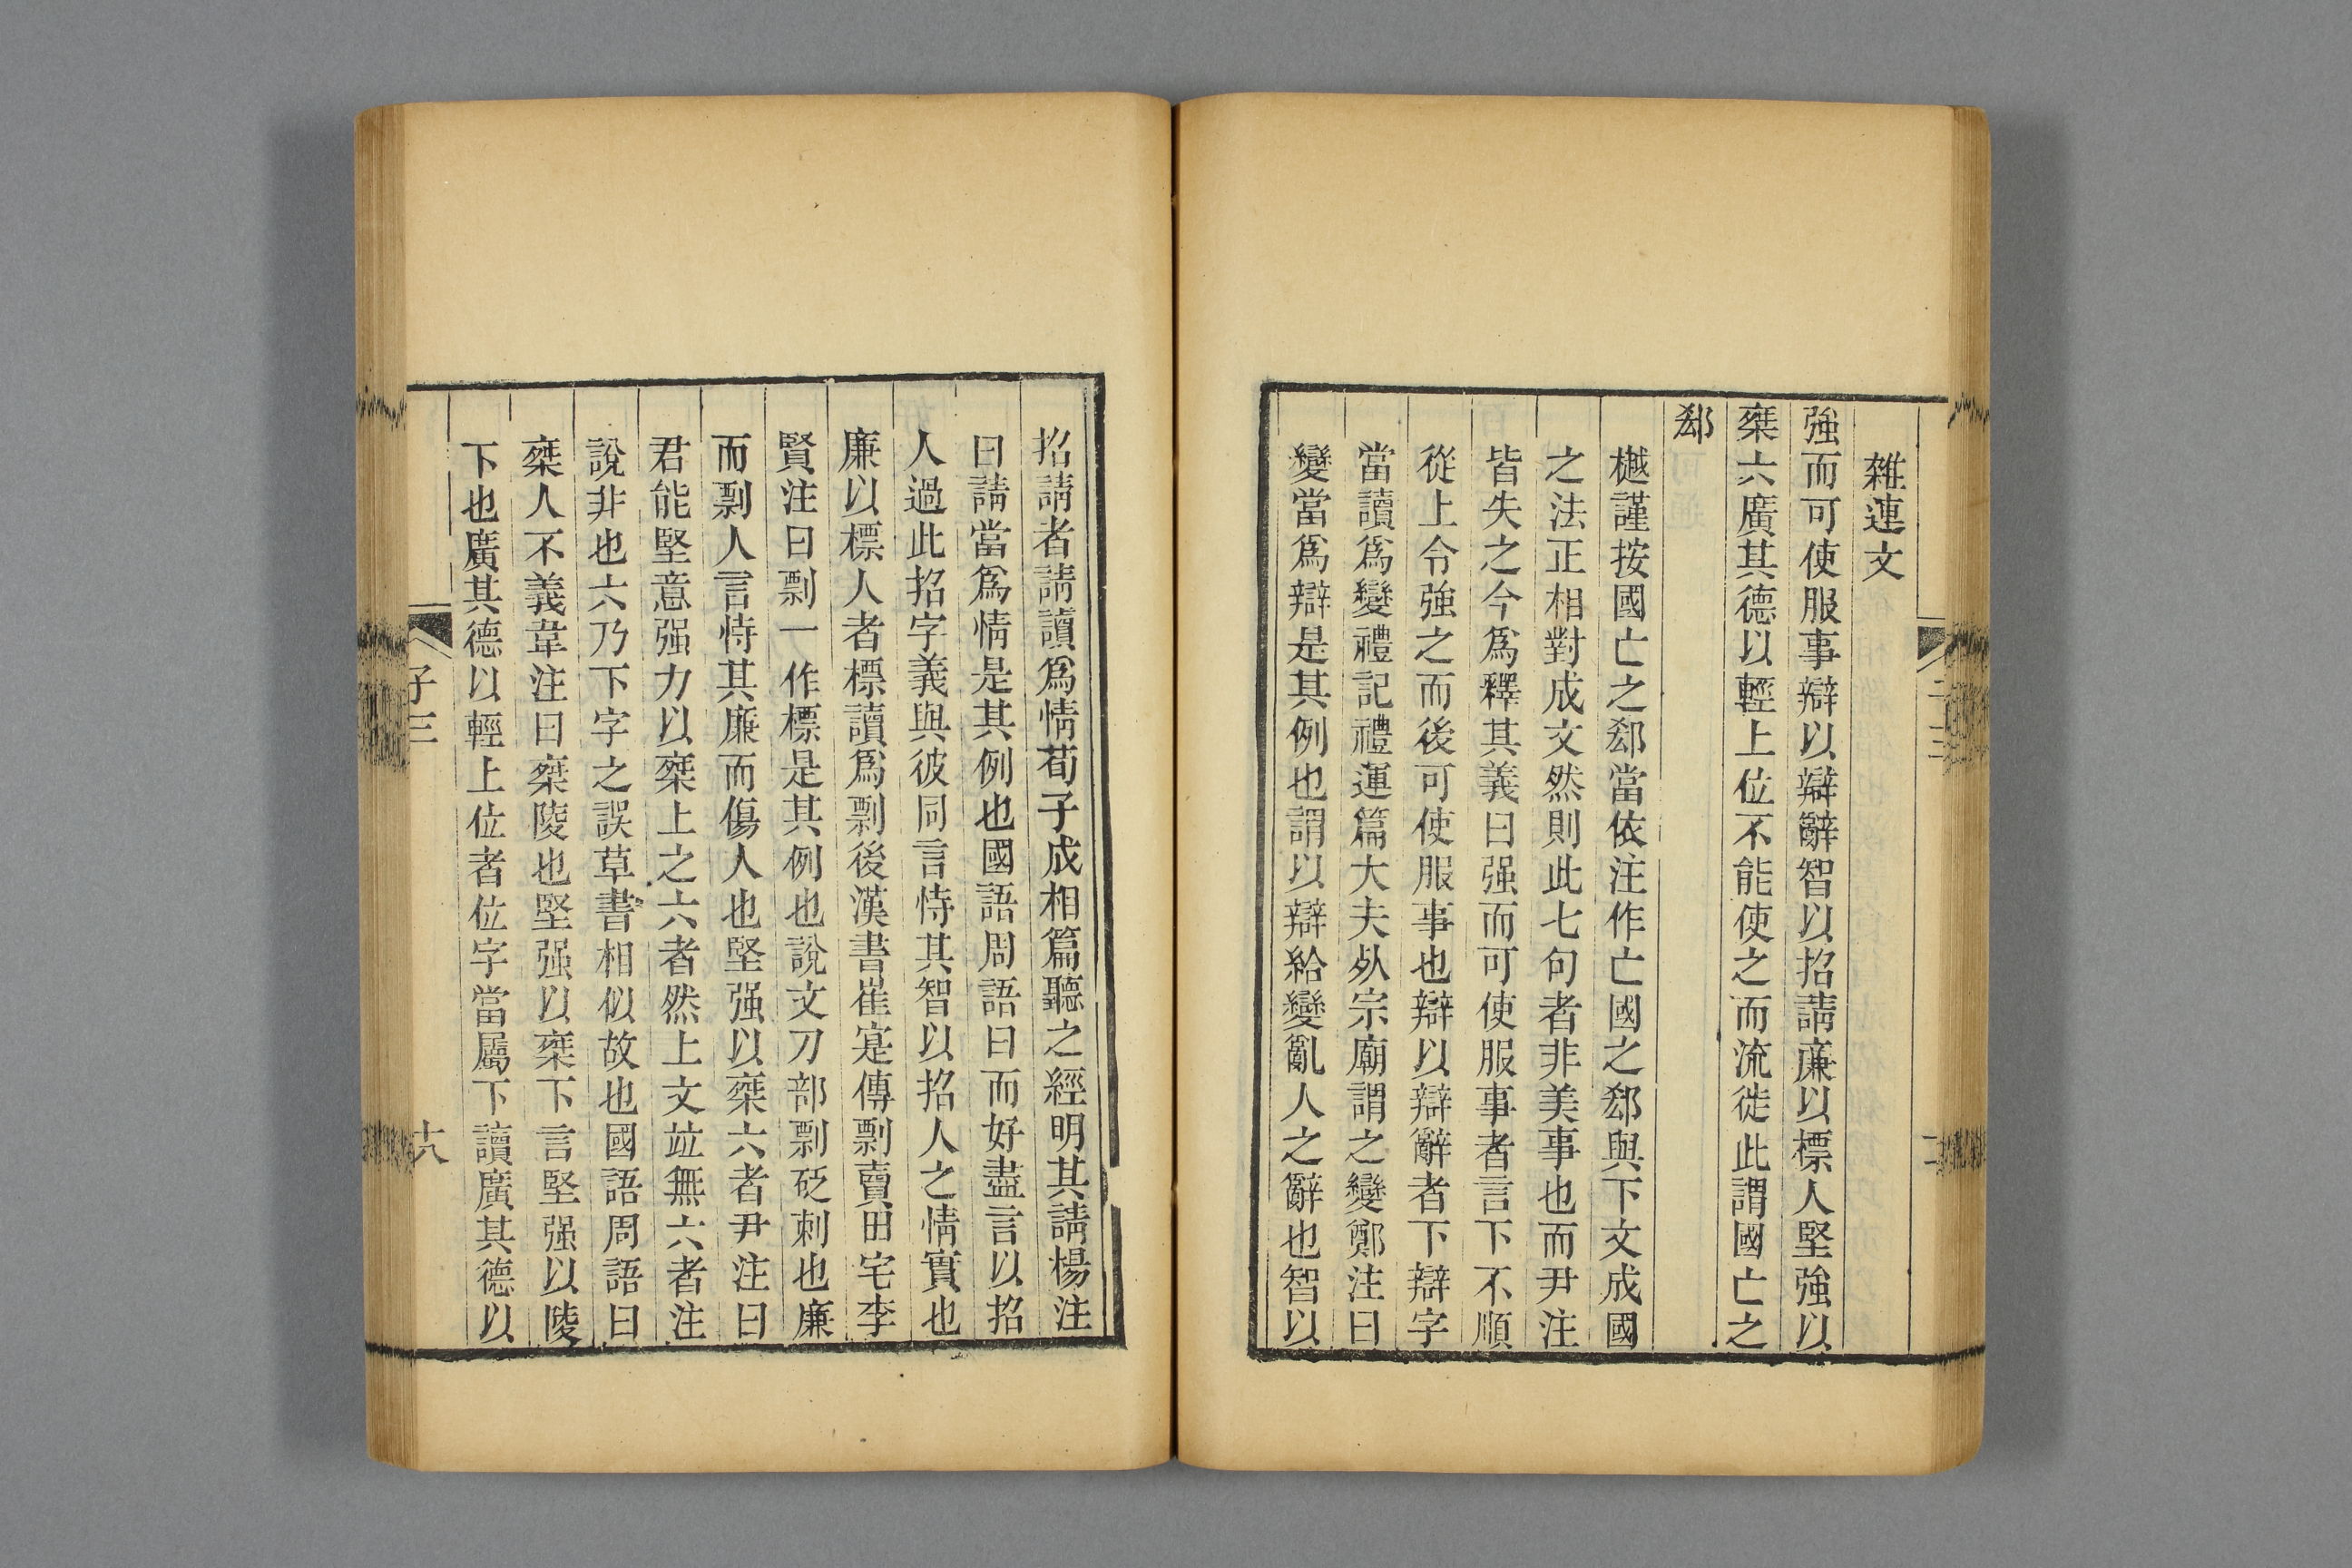 雜連文
強而可使服事辯以辯辭智以招請廉以標人堅強以
椉六廣其德以輕上位不能使之而流徙此謂國亡之
郄
樾謹按國亡之郄當依注作亡國之郄與下文成國
之法正相對成文然則此七句者非美事也而尹注
皆失之今爲釋其義曰强而可使服事者言下不順
從上令強之而後可使服事也辯以辯辭者下辯字
當讀爲變禮記禮運篇大夫死宗廟謂之變鄭注曰
變當爲辯是其例也謂以辯給變亂人之辭也智以
招請者請讀爲情荀子成相篇聽之經明其請楊注
曰請當爲情是其例也國語周語曰而好盡言以招
人過此招字義與彼同言恃其智以招人之情實也
廉以標人者標讀爲剽後漢書崔寔傳剽賣田宅李
賢注曰剽一作標是其例也說文刀部剽砭刺也廉
而剽人言恃其廉而傷人也堅强以椉六者尹注曰
君能堅意强力以椉上之六者然上文竝無六者注
說非也六乃下字之誤草書相似故也國語周語曰
椉人不義韋注曰椉陵也堅强以椉下言堅强以陵
下也廣其德以輕上位者位字當屬下讀廣其德以
子三
十八